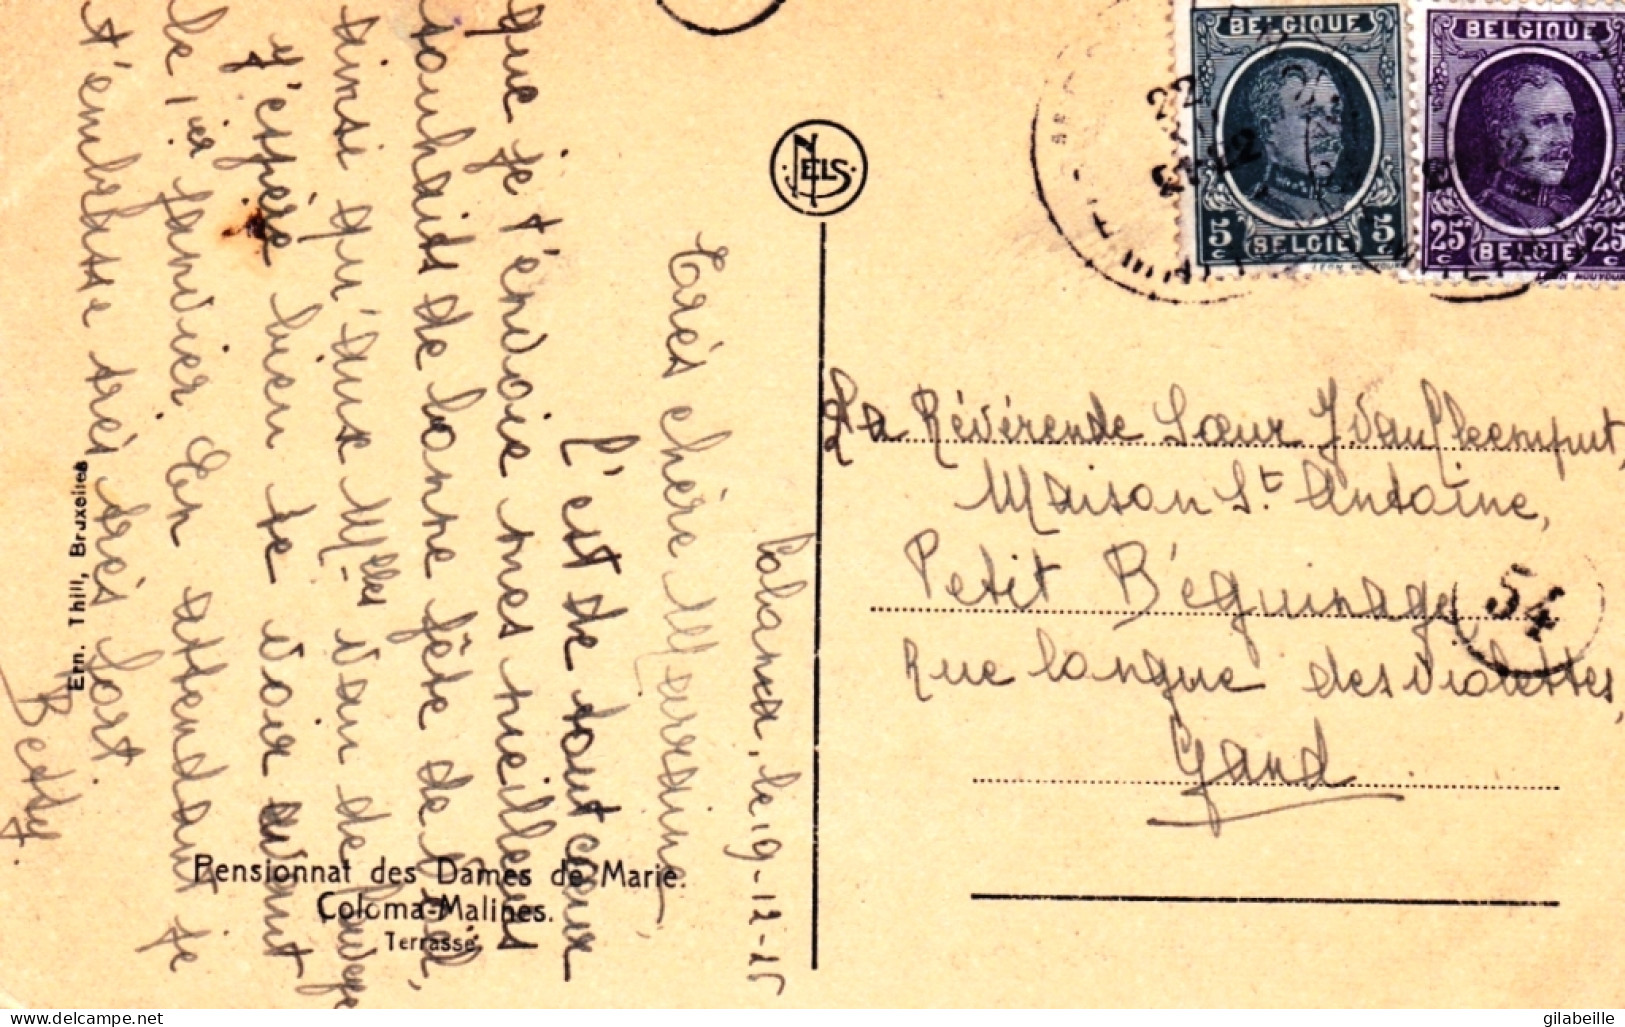 BELGIQUE
5 c 5 c
BELGIE
BELGIQUE
25 c 25 c
BELGIE
22
NELS
Coloma, le 19-12-25
Très chère Marraine,
C'est de tout cœur
que je t'envoie mes meilleurs
souhaits de bonne fête de Noël,
ainsi qu'aux Melles van de
J'espère bien te voir avant
le 1ier Janvier. En attendant je
t'embrasse très très fort.
Betsy.
La Révérende Sœur
Maison St Antoine,
Petit Béguinage,
Rue longue des violettes,
Gand
54
Ern. Thill, Bruxelles
Pensionnat des Dames de Marie.
Coloma-Malines.
Terrasse.
delcampe.net
gilabeille